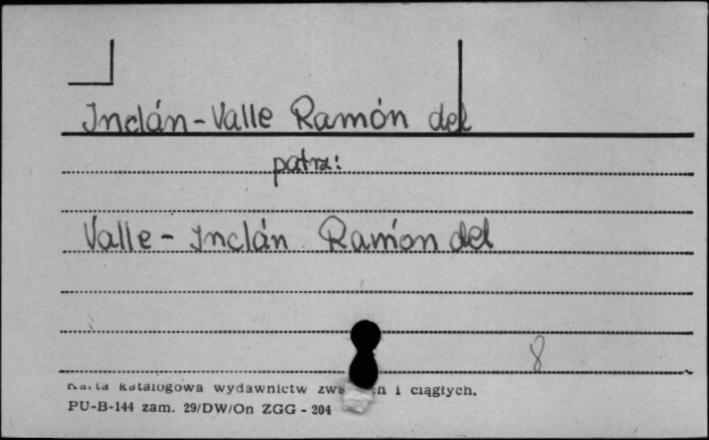 Inclán-Valle Ramón del
patrz:
Valle-Inclán Ramón del
8
Karta katalogowa wydawnictw i ciągłych.
PU-B-144 zam. 29/DW/On ZGG - 204